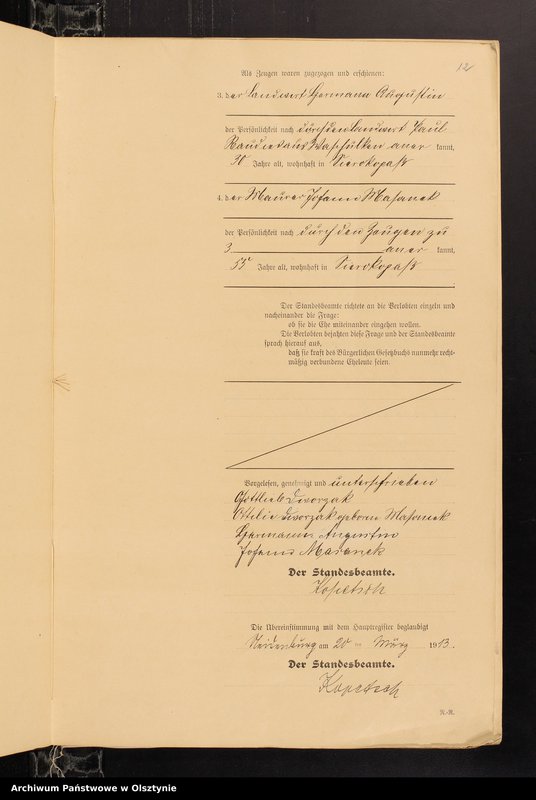 12
Als Zeugen waren zugezogen und erschienen:
3. der Landwirt Hermann Augustin
der Persönlichkeit nach durch den Landwirt Paul
aus Waschulken aner kannt,
30 Jahre alt, wohnhaft in Sierokopaß
4. der Maurer Johann Masanek
der Persönlichkeit nach durch den Zeugen zu
3 aner kannt,
55 Jahre alt, wohnhaft in Sierokopaß
Der Standesbeamte richtete an die Verlobten einzeln und
nacheinander die Frage:
ob sie die Ehe miteinander eingehen wollen.
Die Verlobten bejahten diese Frage und der Standesbeamte
sprach hierauf aus,
daß sie kraft des Bürgerlichen Gesetzbuchs nunmehr recht-
mäßig verbundene Eheleute seien.
Vorgelesen, genehmigt und unterschrieben
Gottlieb Dworzak
Ottilie Dworzak geborene Masanek
Hermann Augustin
Johann Masanek
Der Standesbeamte.
Kopetsch
Die Übereinstimmung mit dem Hauptregister beglaubigt
Neidenburg am 20 ten März 1913.
Der Standesbeamte.
Kopetsch
R.-R.
Archiwum Państwowe w Olsztynie